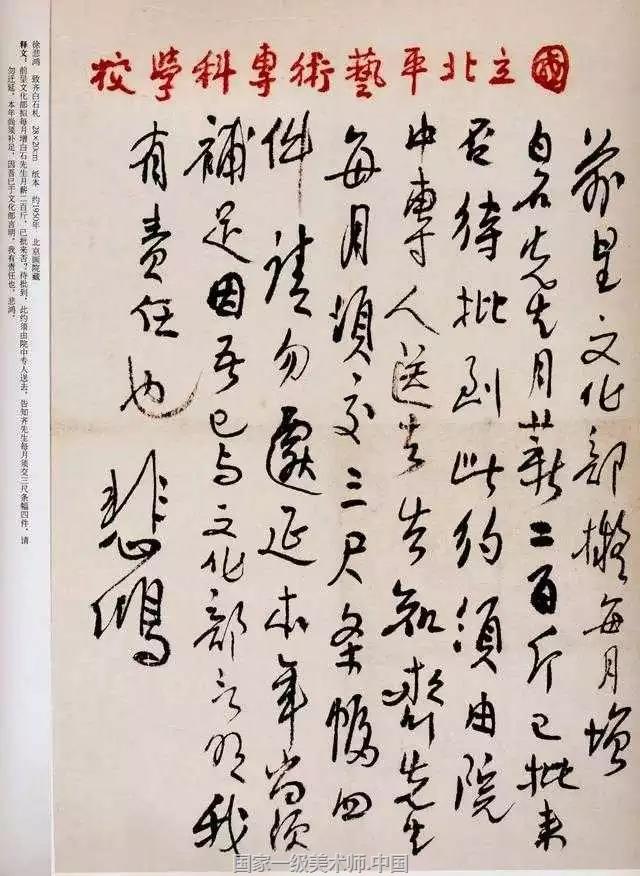 國立北平藝術專科學校
前呈文化部擬每月增
白石先生月薪二百斤已批来
否待批到此约須由院
中專人送去告知齊先生
每月須交三尺条幅四
件請勿遷延本年尚須
補足因吾已与文化部言明我
有責任也
悲鴻
徐悲鸿 致齐白石札 28×20cm 纸本 约1950年 北京画院藏
释文：前呈文化部拟每月增白石先生月薪二百斤，已批来否？待批到，此约须由院中专人送去，告知齐先生每月须交三尺条幅四件，请
勿迁延，本年尚须补足，因吾已于文化部言明，我有责任也。悲鸿。
国家一级美术师.中国